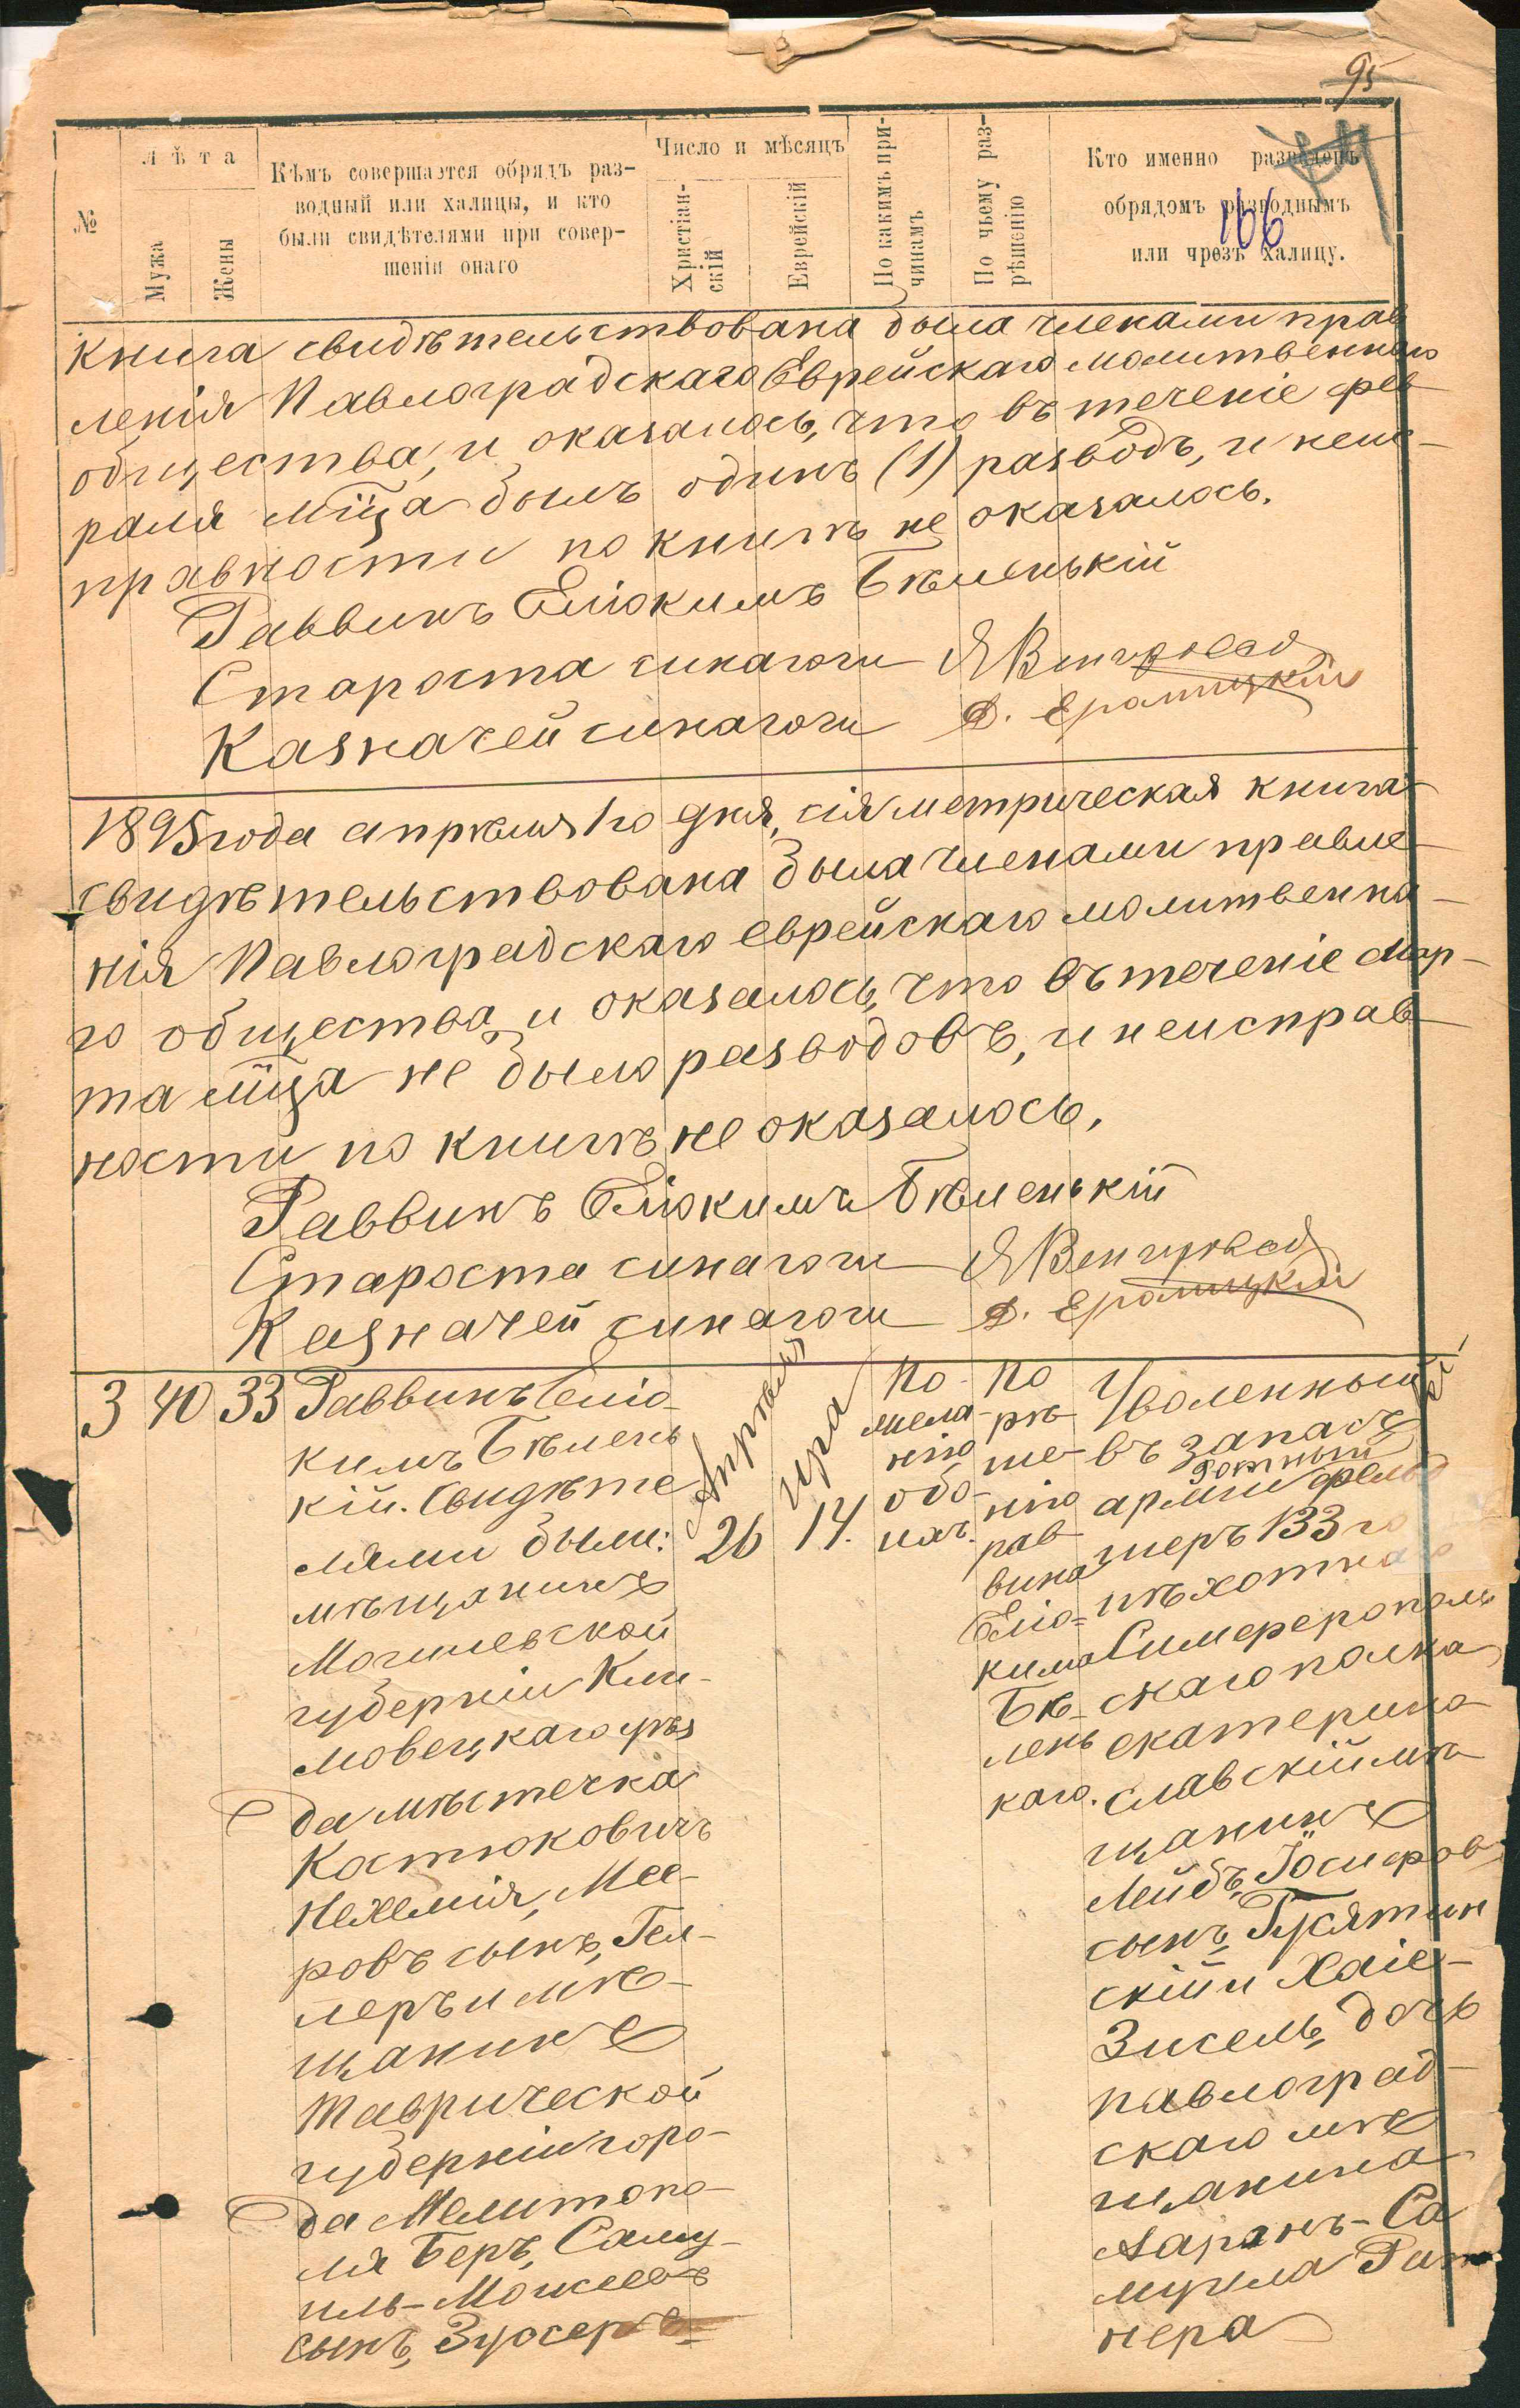 95
166
№
Лѣта
Мужа
Жены
Кѣмъ совершается обрядъ раз-
водный или халицы, и кто
были свидѣтелями при совер-
шеніи онаго
Число и мѣсяцъ
Христіан-
скій
Еврейскій
По какимъ при-
чинамъ
По чьему раз-
рѣшенію
Кто именно разведенъ
обрядомъ разводнымъ
или чрезъ халицу.
книга свидѣтельствована была членами прав
ленія Павлоградскаго Еврейскаго молитвеннаго
общества, и оказалось, что въ теченіе фев
раля мѣца былъ одинъ (1) разводъ, и неис-
правности по книгѣ не оказалось.
Раввинъ Еліокимъ Бѣленькій
Староста синагоги Я Венгровъ
Казначей синагоги
1895 года апрѣля 1го дня, сія метрическая книга
свидѣтельствована была членами правле-
нія Павлоградскаго еврейскаго молитвенна-
го общества и оказалось, что въ теченіе мар-
та мѣца не было разводовъ, и неисправ
ности по книгѣ не оказалось,
Раввинъ Еліокимъ Бѣленькій
Староста синагоги Я Венгровъ
Казначей синагоги
3 40 33
Раввинъ Еліо-
кимъ Бѣлень
кій. Свидѣте
лями были:
мѣщанинъ
Могилевской
губерніи Кли-
мовецкаго уѣз
да мѣстечка
Костюковичъ
Нехемія, Мее-
ровъ сынъ, Гел-
леръ и мѣ-
щанинъ
Таврической
губерніи горо-
да Мелитопо-
ля Беръ, Саму-
иль-Моисеевъ
сынъ,
Апрѣля
26
Ира
14.
По
жела-
нію
обо-
ихъ.
По
рѣ-
ше-
нію
рав
вина
Еліо-
кима
Бѣ-
лень
каго.
Уволенный
въ запасъ
ротный
арміи фельд
шеръ 133 го
пѣхотнаго
Симферополь
скаго полка
екатерино-
славскій мѣ
щанинъ
Лейбъ, Іосифовъ
сынъ,
скій и Хаіе-
Зисель, дочь
павлоград-
скаго мѣ
щанина
Ааронъ-Са
муила Рит
нера